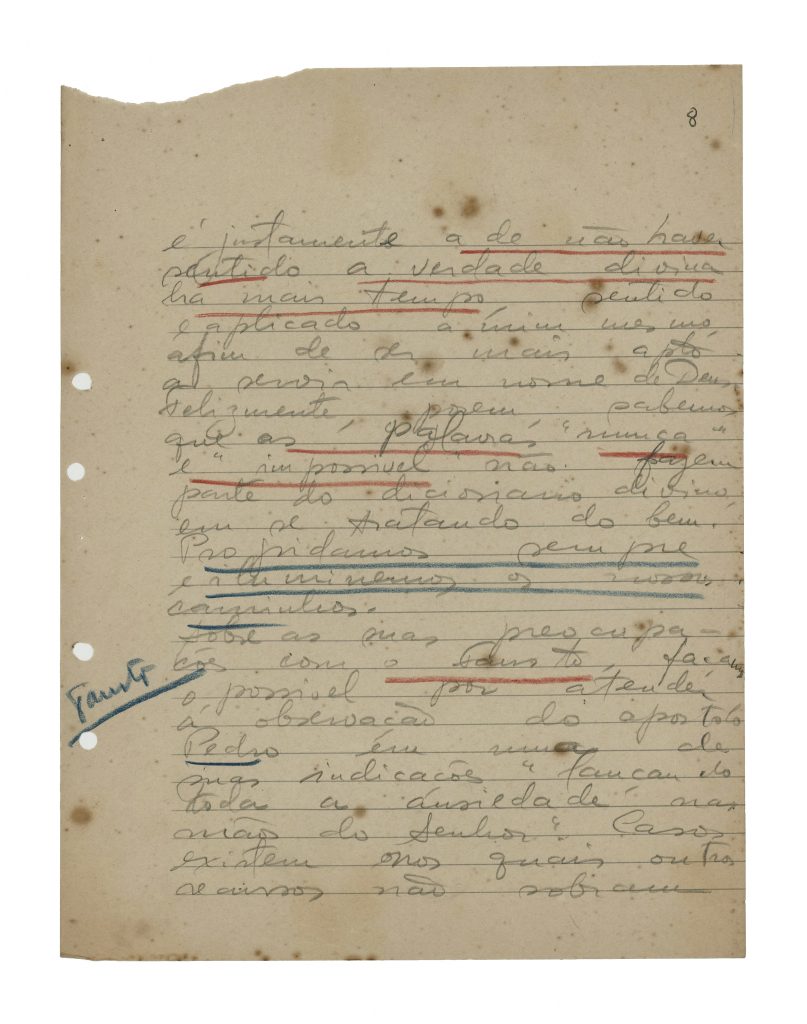 8
é justamente a de não haver
sentido a verdade divina
há mais tempo, sentido
e aplicado a mim mesmo,
afim de ser mais apto
a servir em nome de Deus.
Felizmente, porem sabemos
que as palavras "nunca"
e "impossivel" não fazem
parte do dicionario divino,
em se tratando do bem.
Progridamos sempre
e iluminemos os nossos
caminhos.
Sobre as suas preocupa-
ções com o Fausto, façamos
o possivel por atender
Fausto
á observação do apostolo
Pedro em uma de
suas indicações "lançando
toda a ansiedade nas
mãos do Senhor". Casos
existem nos quais outros
recursos não sobram